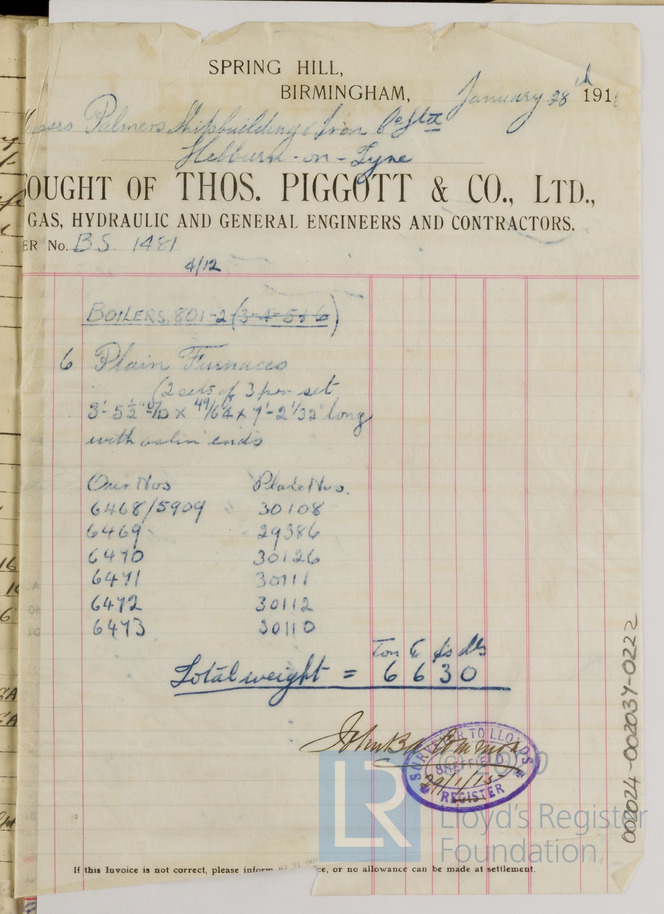 SPRING HILL,
BIRMINGHAM, January 28th 191
Palmers Shipbuilding & Iron Co Ltd
Hebburn-on-Tyne
OUGHT OF THOS. PIGGOTT & CO., LTD.,
GAS, HYDRAULIC AND GENERAL ENGINEERS AND CONTRACTORS.
ER No. B.S. 1481
4/12
BOILERS. 801-2 (3-4-5+6)
6 Plain Furnaces
(2 sets of 3 per set
3'-5½" × 49/64 × 7'-2 1/32" long
with ends
Our Nos Plate Nos.
6468/5909 30108
6469 29386
6470 30126
6471 30111
6472 30112
6473 30110
Total weight = 6 6 3 0
SURVEYOR TO LLOYD'S
SHEFFIELD
29/1/15
REGISTER
LR
Lloyd's Register
Foundation
002024-002037-0222
If this Invoice is not correct, please inform or no allowance can be made at settlement.